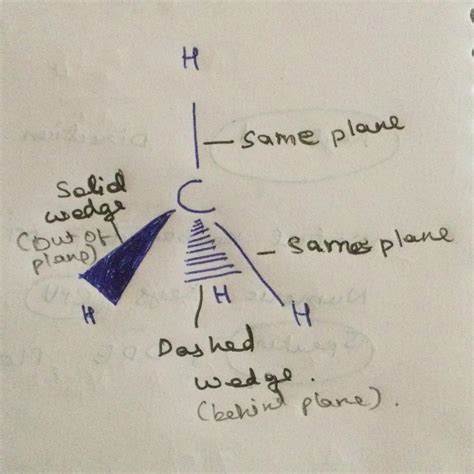 H
same plane
C
Solid
wedge
(out of
plane)
same plane
H
H
H
Dashed
wedge.
(behind plane).